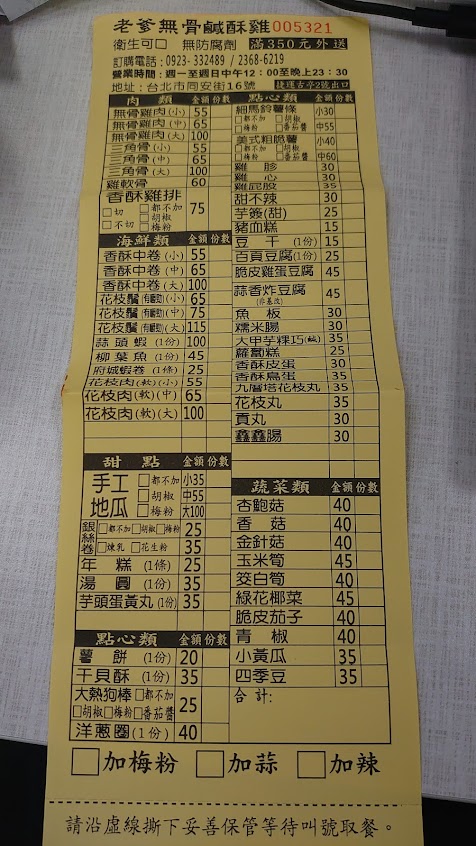 老爹無骨鹹酥雞005321
衛生可口 無防腐劑 滿350元外送
訂購電話:0923-332489 / 2368-6219
營業時間:週一至週日中午12:00至晚上23:30
地址:台北市同安街16號 捷運古亭2號出口
肉類 金額 份數
無骨雞肉(小) 55
無骨雞肉(中) 65
無骨雞肉(大) 100
三角骨(小) 55
三角骨(中) 65
三角骨(大) 100
雞軟骨 60
香酥雞排 75
□切 □不切 □都不加 □胡椒 □梅粉
海鮮類 金額 份數
香酥中卷(小) 55
香酥中卷(中) 65
香酥中卷(大) 100
花枝鬚(小) 65
花枝鬚(中) 75
花枝鬚(大) 115
蒜頭蝦(1份) 100
柳葉魚(1份) 45
府城蝦卷(1條) 25
花枝肉(軟)(小) 55
花枝肉(軟)(中) 65
花枝肉(軟)(大) 100
甜點 金額 份數
手工地瓜
□都不加 小35
□胡椒 中55
□梅粉 大100
銀絲卷
□都不加□胡椒□梅粉 25
□煉乳 □花生粉 35
年糕(1條) 25
湯圓(1份) 35
芋頭蛋黃丸(1份) 35
點心類 金額 份數
薯餅(1份) 20
干貝酥(1份) 35
大熱狗棒 □都不加 25
□胡椒□梅粉□番茄醬
洋蔥圈(1份) 40
點心類 金額 份數
細馬鈴薯條 小30
□都不加 □胡椒
□梅粉 □番茄醬 中55
美式粗脆薯 小40
□都不加 □胡椒
□梅粉 □番茄醬 中60
雞胗 30
雞心 30
雞屁股 35
甜不辣 30
芋簽(甜) 25
豬血糕 15
豆干(1份) 15
百頁豆腐(1份) 25
脆皮雞蛋豆腐 45
蒜香炸豆腐 45
(非基改)
魚板 30
糯米腸 30
大甲芋粿巧(鹹) 35
蘿蔔糕 25
香酥皮蛋 30
香酥鳥蛋 35
九層塔花枝丸 35
花枝丸 35
貢丸 30
鑫鑫腸 30
蔬菜類 金額 份數
杏鮑菇 40
香菇 40
金針菇 40
玉米筍 45
筊白筍 40
綠花椰菜 45
脆皮茄子 40
青椒 40
小黃瓜 35
四季豆 35
合計:
□加梅粉 □加蒜 □加辣
請沿虛線撕下妥善保管等待叫號取餐。